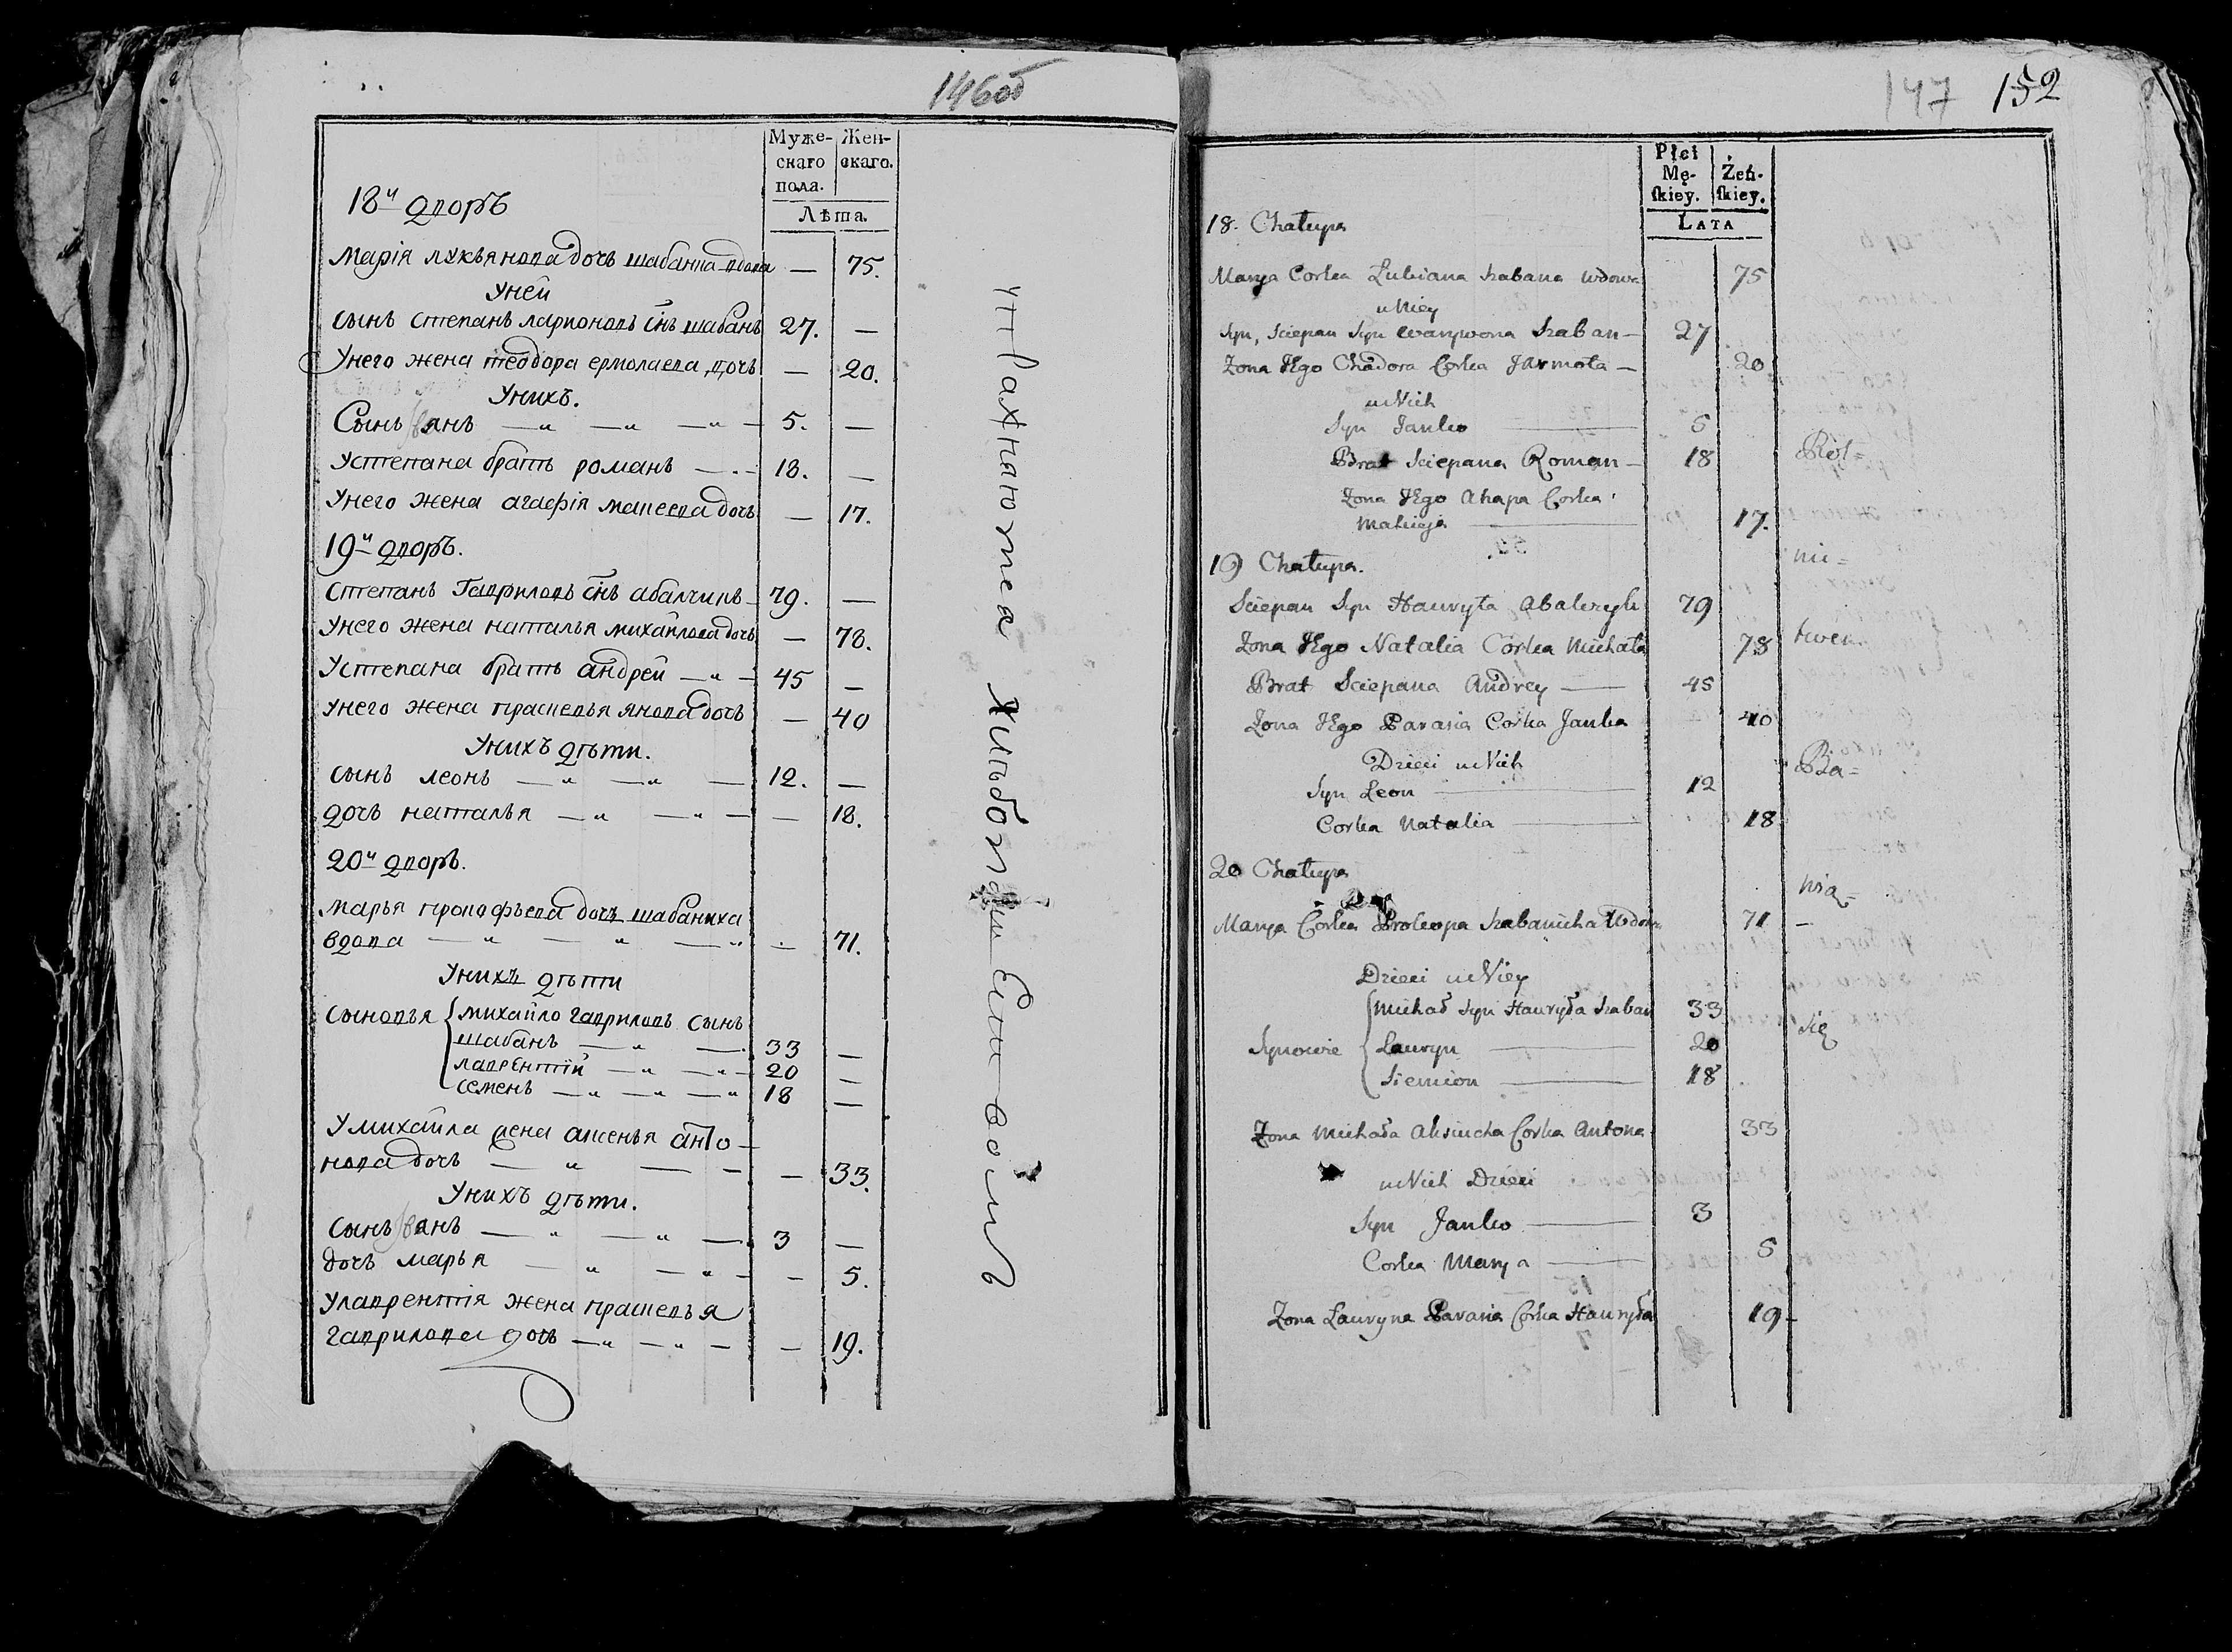 146об
Муже-
скаго
пола.
Жен-
скаго.
Лѣта.
18й дворъ
Марія лукьянова дочь шабанка вдова — 75.
Уней
сынъ степанъ ларионовъ сн̃ъ шабанъ 27. —
Унего жена теодора ермолаева дочь — 20.
Унихъ.
Сынъ иванъ — „ — „ — „ — 5. —
Устепана братъ романъ — „ — 18. —
Унего жена агафія матвеева дочь — 17.
19й дворъ.
степанъ Гавриловъ сн̃ъ абалчикъ 79. —
Унего жена наталья михайлова дочь — 78.
Устепана братъ андрей — „ — 45 —
унего жена прасковья янова дочь — 40
Унихъ дѣти.
сынъ леонъ — „ — „ — 12. —
дочь наталья — „ — „ — — 18.
20й дворъ.
марья прокофьева дочь шабаниха
вдова — „ — „ — „ — 71.
Унихъ дѣти
сыновья { михайло гавриловъ сынъ
шабанъ — „ — 33 —
лаврентий — „ — „ — 20 —
семенъ — „ — „ — „ 18 —
Умихайла жена аксенья анто-
нова дочь — „ — — — 33.
Унихъ дѣти.
сынъ иванъ — „ — „ — 3 —
дочь марья — „ — „ — — 5.
улаврентія жена прасковья
гаврилова дочь — „ — „ — — 19.
147 152
Płci
Mę-
ſkiey.
Żeń-
ſkiey.
LATA
18. Chałupa
Marya Corka Łukiana Szabana Wdowa 75
u Niey
Syn, Sciepan Syn Łarywona Szaban — 27
Zona Jego Chadora Corka Jarmoła — 20
u Nich
Syn Janko — 5
Brat Sciepana Roman — 18
Zona Jego Ahapa Corka
Mahieja — 17.
19 Chałupa.
Sciepan Syn Hauryła Abalczyk 79
Zona Jego Natalia Corka Michała 78
Brat Sciepana Andrey — 45
Zona Jego Parasia Corka Janka 40
Dzieci u Nich
Syn Leon — 12
Corka Natalia — 18
20 Chałupa
Marya Corka Prokopa Szabanicha Wdowa 71 —
Dzieci u Niey
Synowie { Michał Syn Hauryła Szaban 33
Lauryn — 20
Siemion — 18
Zona Michała Aksiucha Corka Antona 33
u Nich Dzieci
Syn Janko — 3
Corka Marya — 5
Zona Lauryna Parasia Corka Hauryła 19 —
Rol=
ni=
ctwem
Ba=
wią=
się